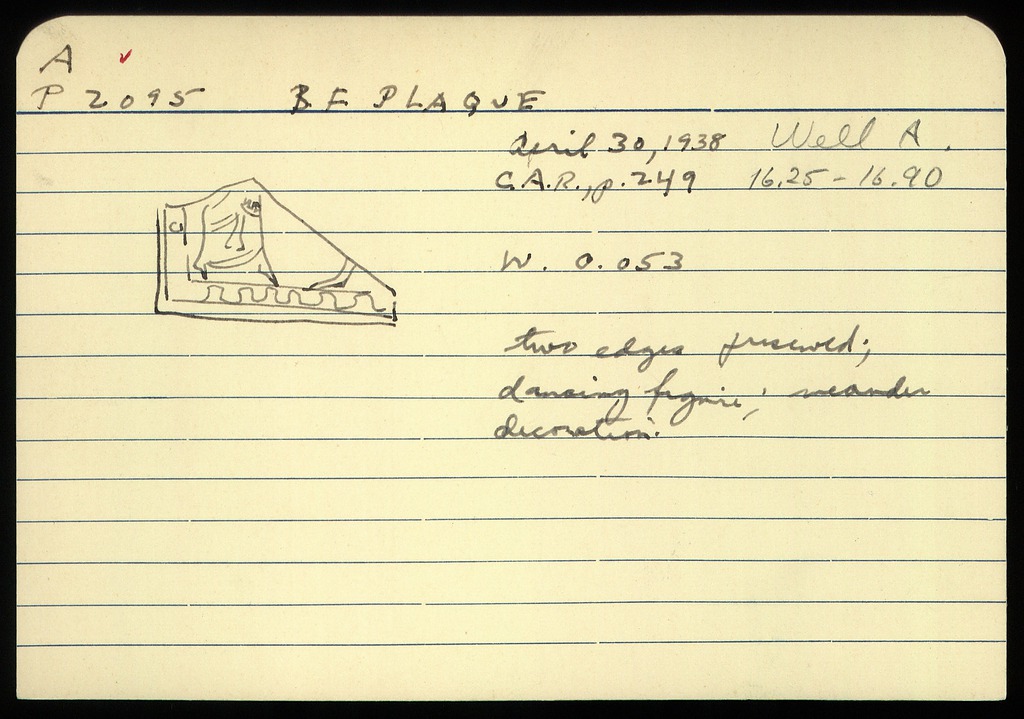 A
P 2095 B.F. PLAQUE
April 30, 1938 Well A.
C.A.R., p. 249 16.25 - 16.90
W. 0.053
two edges preserved;
dancing figure; meander
decoration.